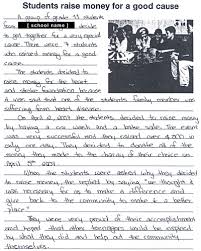 Students raise money for a good cause
A group of grade 11 students
from [school name] decided
to get together for a very special
cause. There were 7 students
who raised money for a good
cause.
The students decided to
raise money for the heart
and stroke foundation because
it was said that one of the students family members was
suffering from heart disease.
On April 2, 2009 the students decided to raise money
by having a car wash and a bake sale. The event
was very successful and they raised over $ in
only one day. They decided to donate all of the
money they made to the charity of their choice on
April 5th 2009.
When the students were asked why they decided
to raise money they replied by saying "we thought it
was necessary for us to make a difference and
give back to the community to make it a better
place."
They were very proud of their accomplishment
and hoped that other teenagers would be inspired
by what they did and help out the community
themselves.